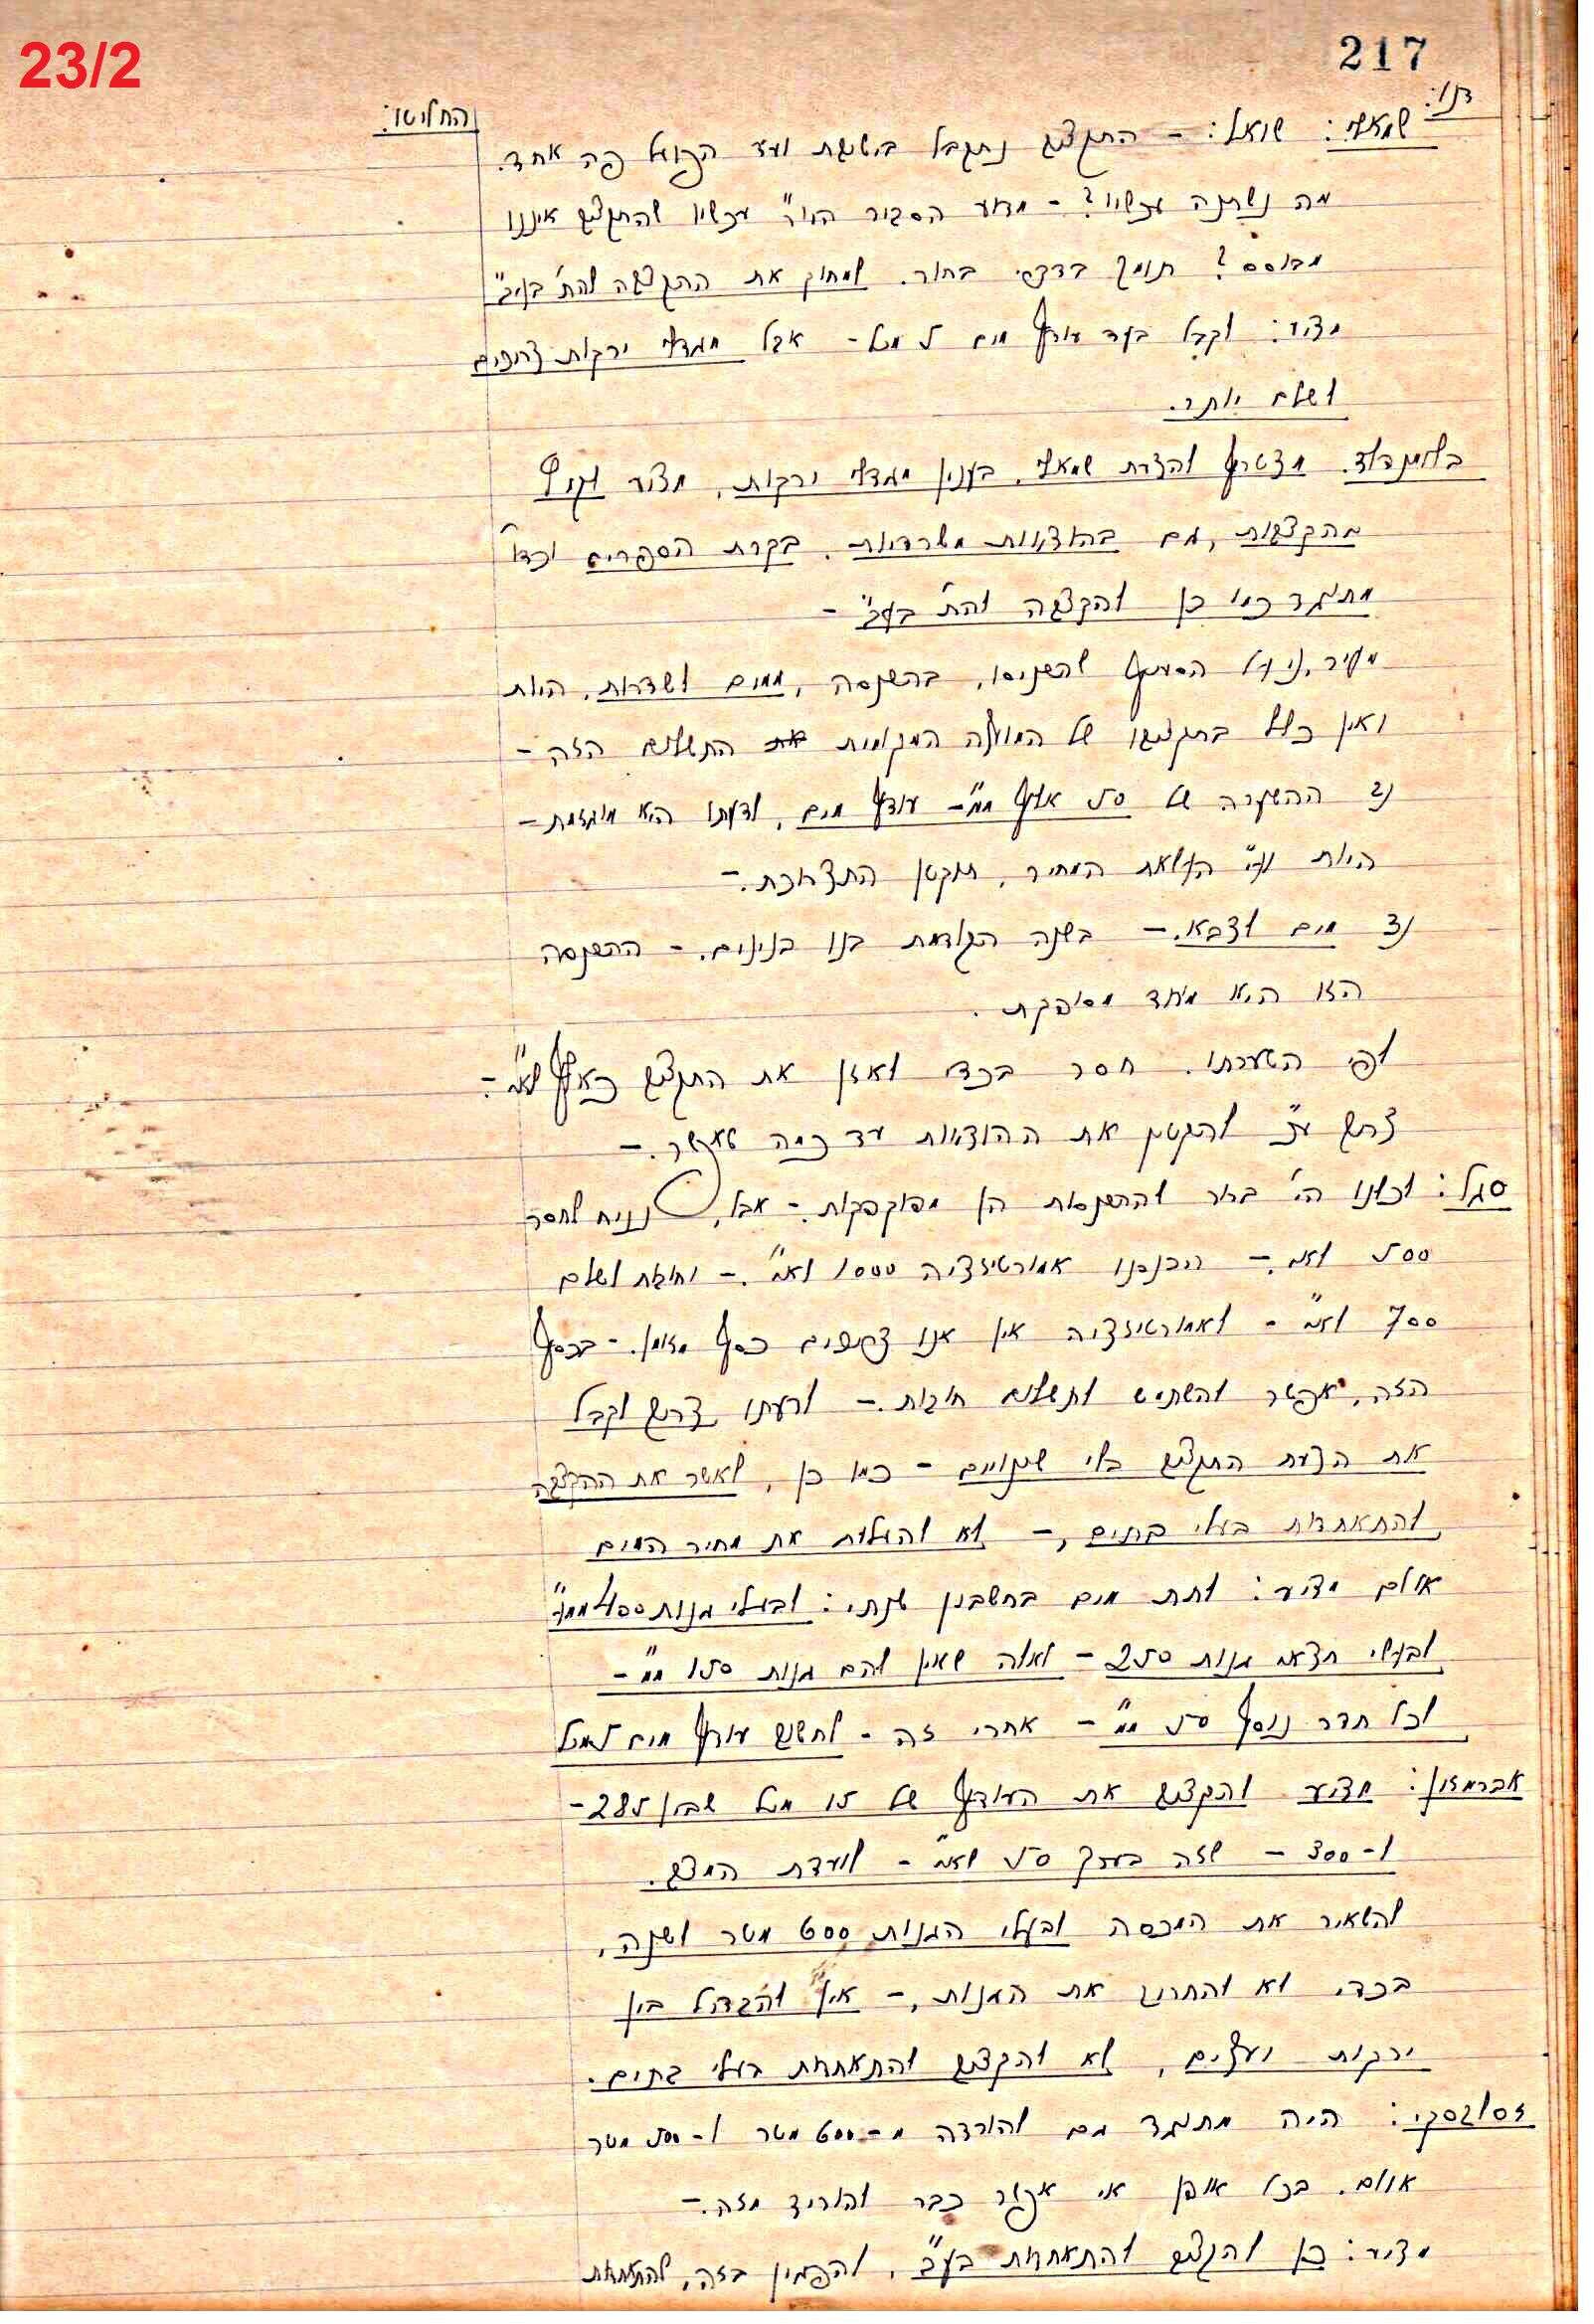 23/2
217
דנו:
החליטו:
שמאלי: שואל: - התקציב נתקבל בישיבת ועד הפועל פה אחד.
מה נשתנה עכשיו? - מדוע הסביר היו"ר עכשיו שהתקציב איננו
מבוסס? תומך בדברי בחור. למחוק את ההקצבה להת' בעה"ב
מציע: לקבל בעד עודף מים 5 מיל - אבל מגדלי ירקות צריכים
לשלם יותר.
בלומנפלד. מצטרף להצעת שמאלי, בענין מגדלי ירקות, מציע לקזז
מהקצבות, גם בהוצאות משרדיות, בקרת הספרים וכדו'
מתנגד כמו כן להקצבה להת' בעה"ב -
מעיר, על הסעיף להכניסו, בהכנסה, ממים לשדרות, היות
ואין כלל בתקציבו של המועצה המקומית התשלום הזה -
2) ההשערה של 50 אלף ממ"ע - עודף מים, לדעתו היא מוגזמת -
היות וע"י העלאת המחיר, תוקטן התצרוכת. -
3) מים לצבא. - בשנה הקודמת בנו בנינים. - ההכנסה
הזו היא מאד מסופקת.
לפי השערתו. חסר בכדי לאזן את התקציב כאלף לא"י -
צריך ע"כ להקטין את ההוצאות עד כמה שאפשר. -
סגל: לכולנו הי' ברור שההכנסות הן מפוקפקות. - אבל, נניח לחסר
500 לא"י. - הכנסנו אמורטיזציה 1000 לא"י. - וחובות לשלם
700 לא"י - לאמורטיזציה אין אנו צריכים כסף מזומן. - בכסף
הזה, אפשר להשתמש לתשלום חובות. - לדעתו צריך לקבל
את הצעת התקציב בלי שינויים - כמו כן, לאשר את ההקצבה
להתאחדות בעלי בתים, - לא להעלות את מחיר המים
אולם מציע: לתת מים בחשבון שנתי: לבעלי גנות 400 ממ"ע
לבעלי חצאי גנות 250 - לאלה שאין להם גנות 150 ממ"ע -
לכל חדר נוסף 50 ממ"ע - אחרי זה - לחשוב עודף מים 5 מיל
אברמזון: מציע להקציב את העודף של 15 מיל שבין 285 -
ל-300 - שזה בערך 50 לא"י - לועדת המצב.
להשאיר את המכסה לבעלי הגנות 600 מטר לשנה,
בכדי לא להחריב את הגנות, - אין להבדיל בין
ירקות ועצים, לא להקציב להתאחדות בעלי בתים.
זסלבסקי: היה מתנגד גם להורדה מ-600 מטר ל-500 מטר
אולם. בכל אופן אי אפשר כבר להוריד מזה. -
מציע: כן להקציב להתאחדות בעה"ב, להסמיך בזה, להתאחדות